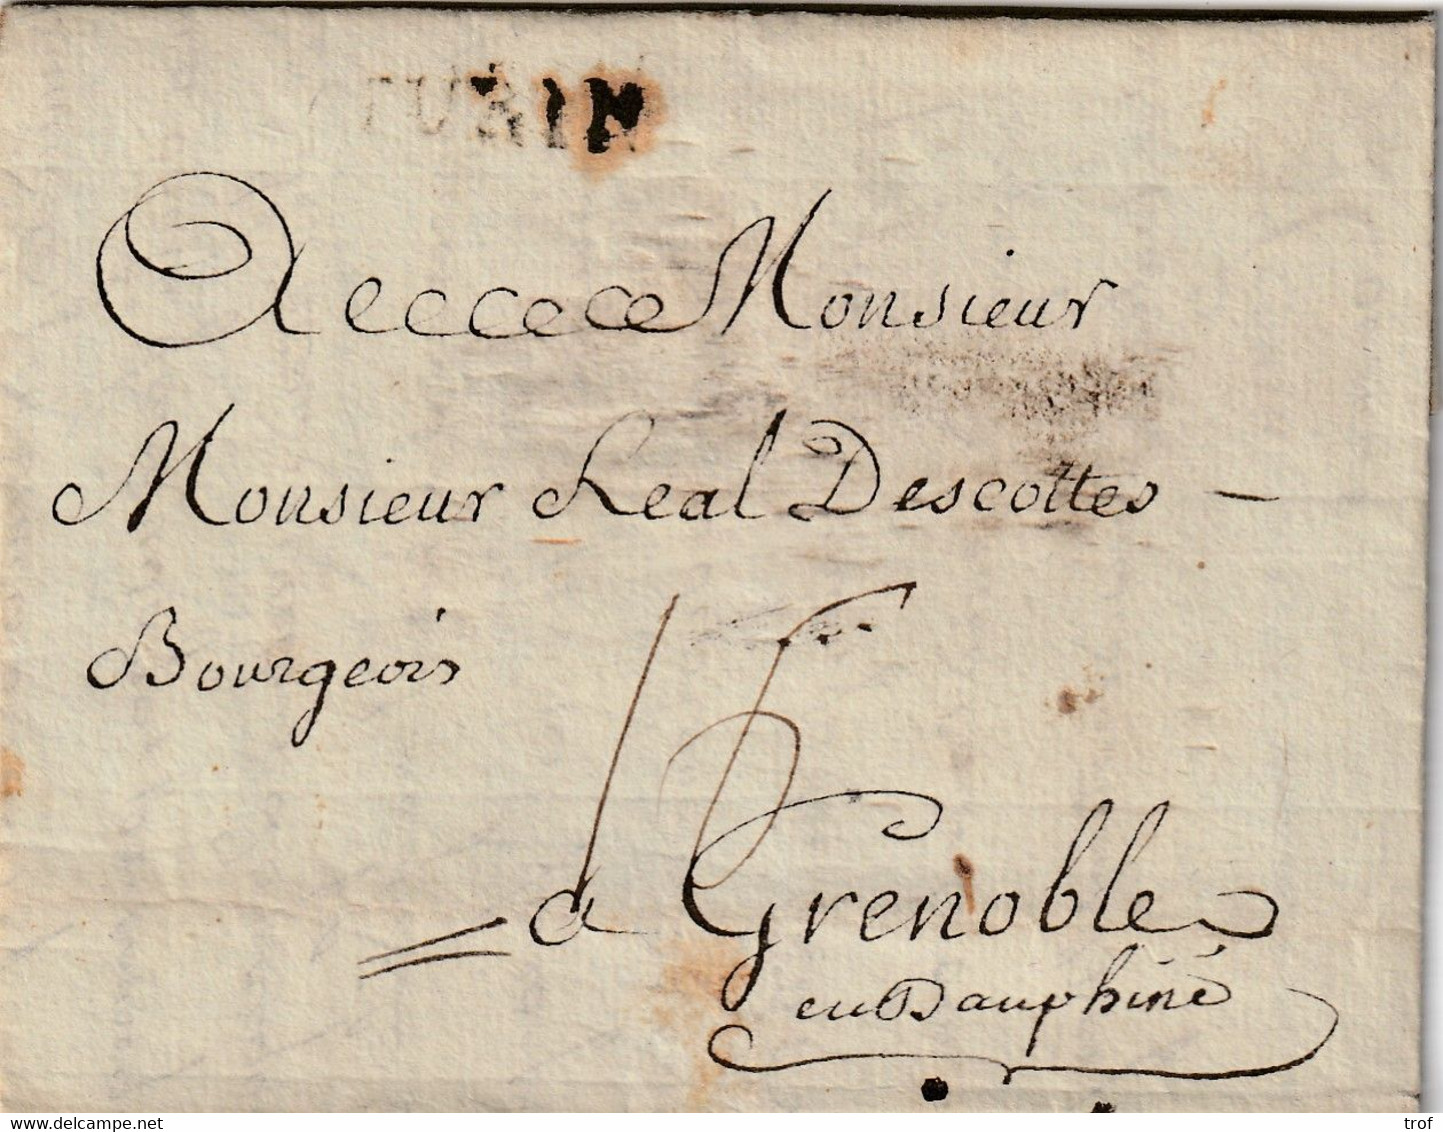 TURIN
A Monsieur
Monsieur Real Descottes
Bourgeois
15
a Grenoble
en Dauphiné
delcampe.net
trof